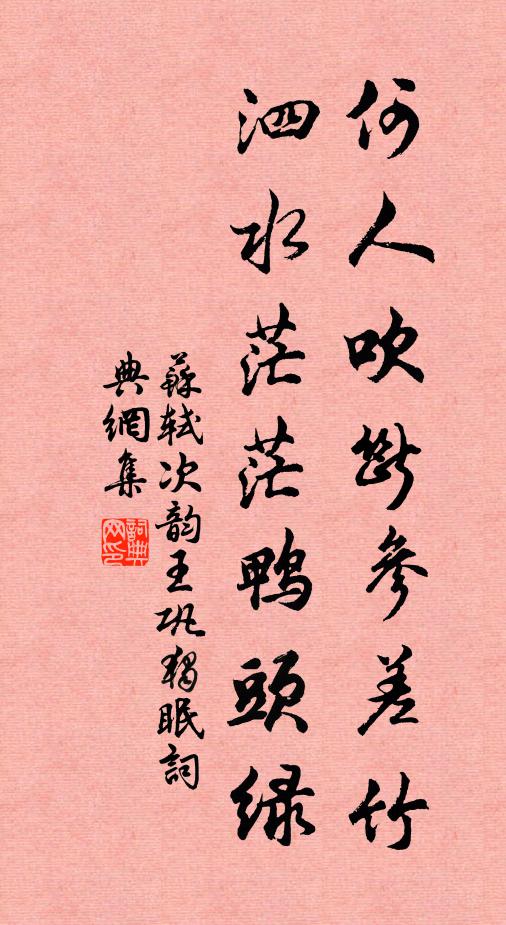 何人吹斷參差竹
泗水茫茫鴨頭綠
蘇軾次韵王巩獨眠詞
典網集
詞典網印